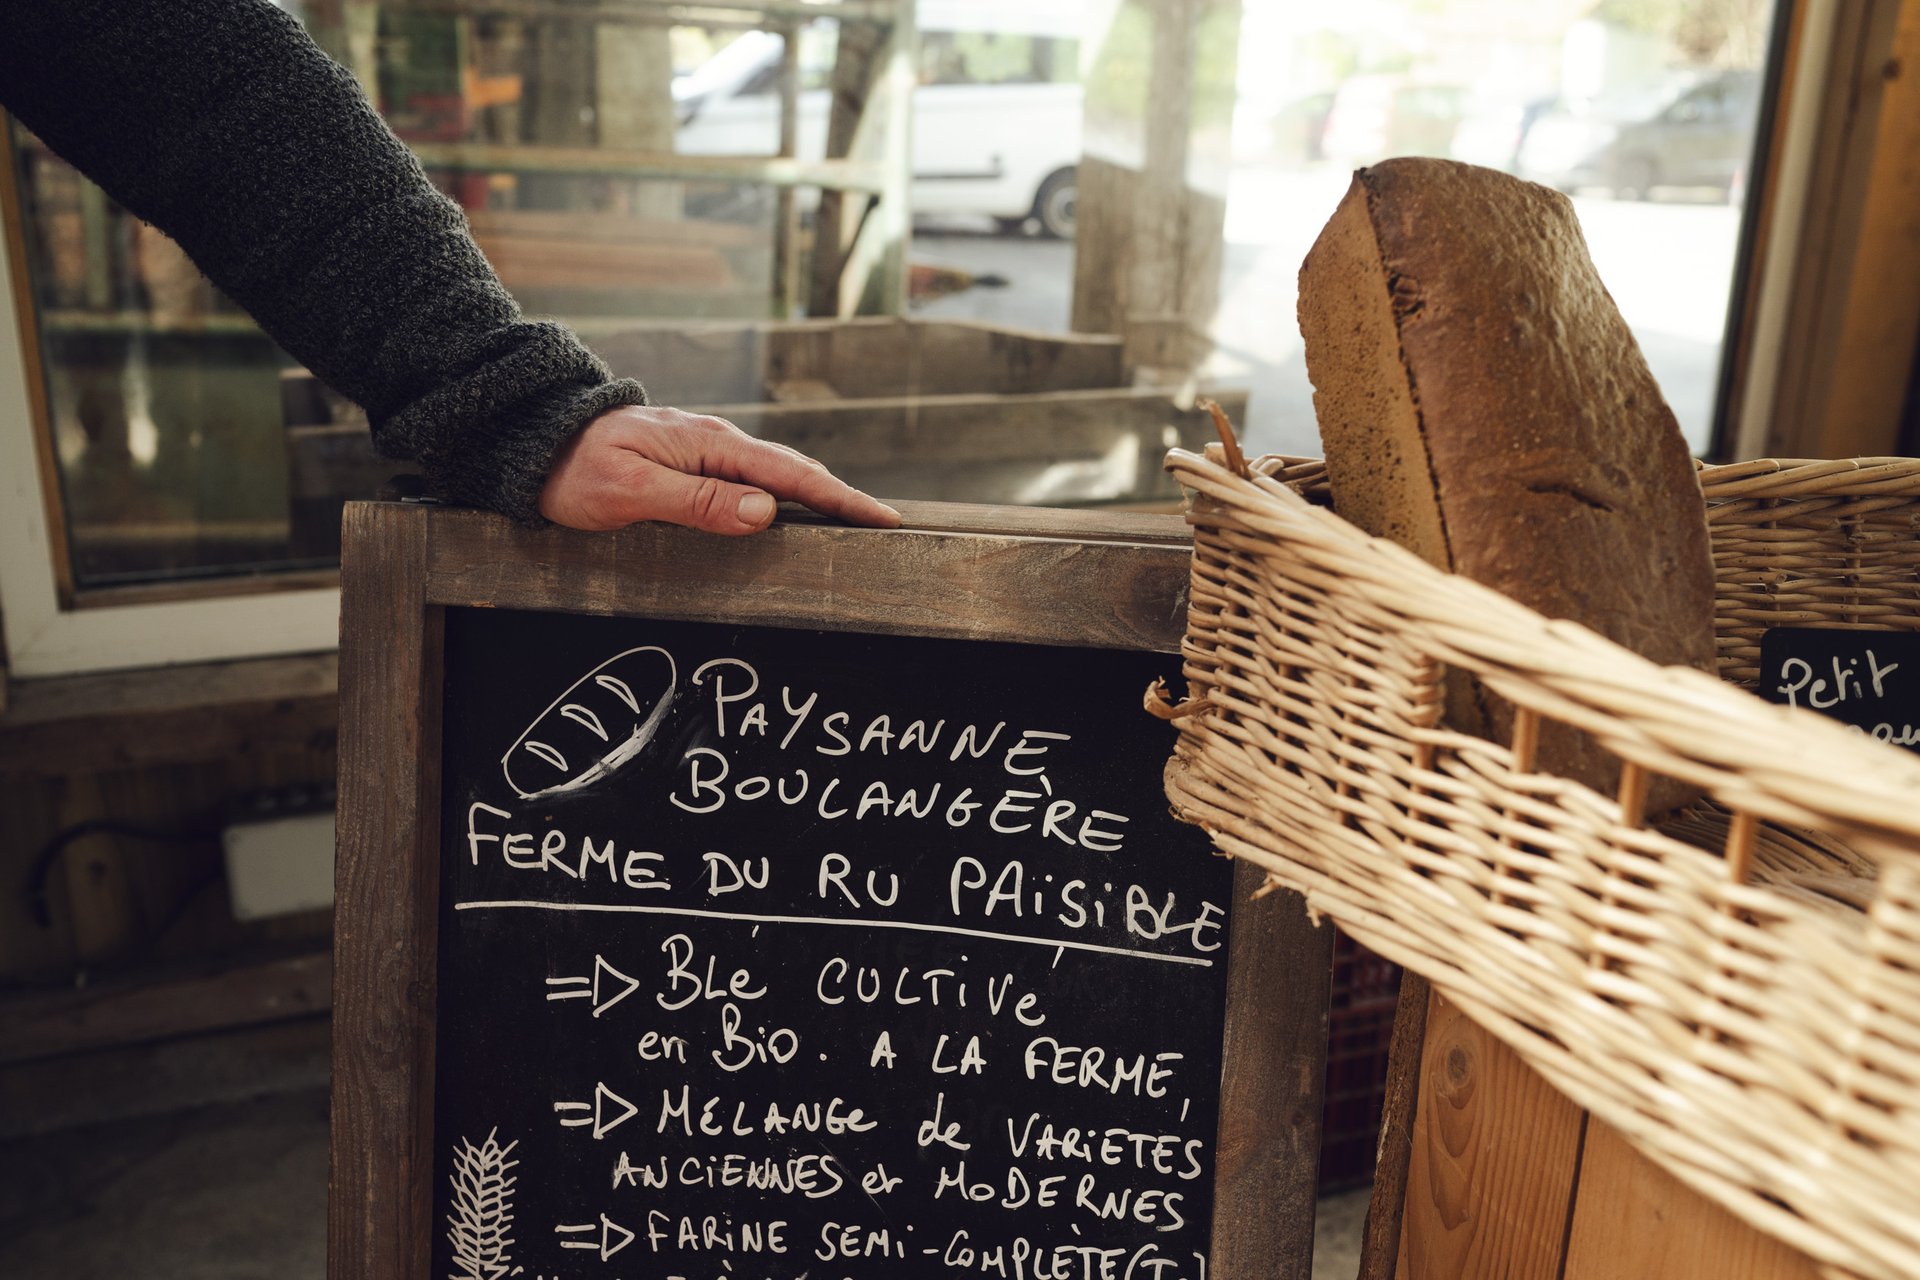 PAYSANNE
BOULANGÈRE
FERME DU RU PAiSiBLE
=> BLé CULTiVé
en Bio. A LA FERME,
=> MéLANGe de VARiÉTÉS
ANCiENNES et MODERNES
=> FARiNE SEMi-COMPLÈTE (T.
Petit